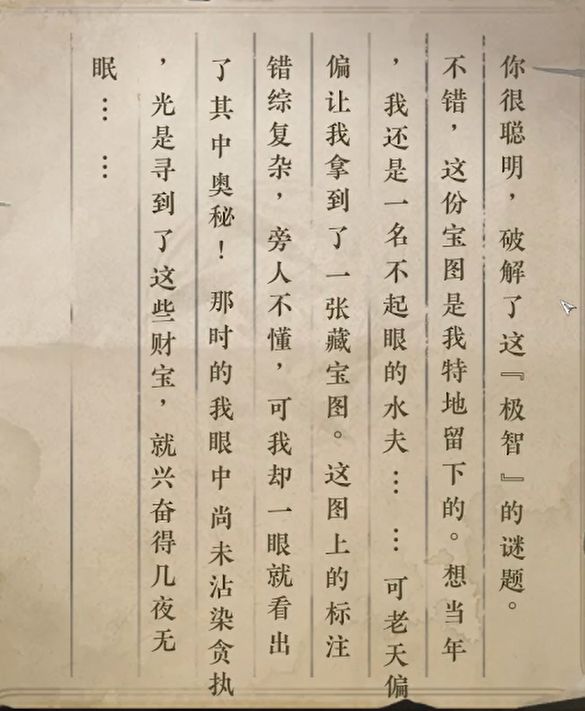 你很聪明，破解了这『极智』的谜题。
不错，这份宝图是我特地留下的。想当年
，我还是一名不起眼的水夫……可老天偏
偏让我拿到了一张藏宝图。这图上的标注
错综复杂，旁人不懂，可我却一眼就看出
了其中奥秘！那时的我眼中尚未沾染贪执
，光是寻到了这些财宝，就兴奋得几夜无
眠……